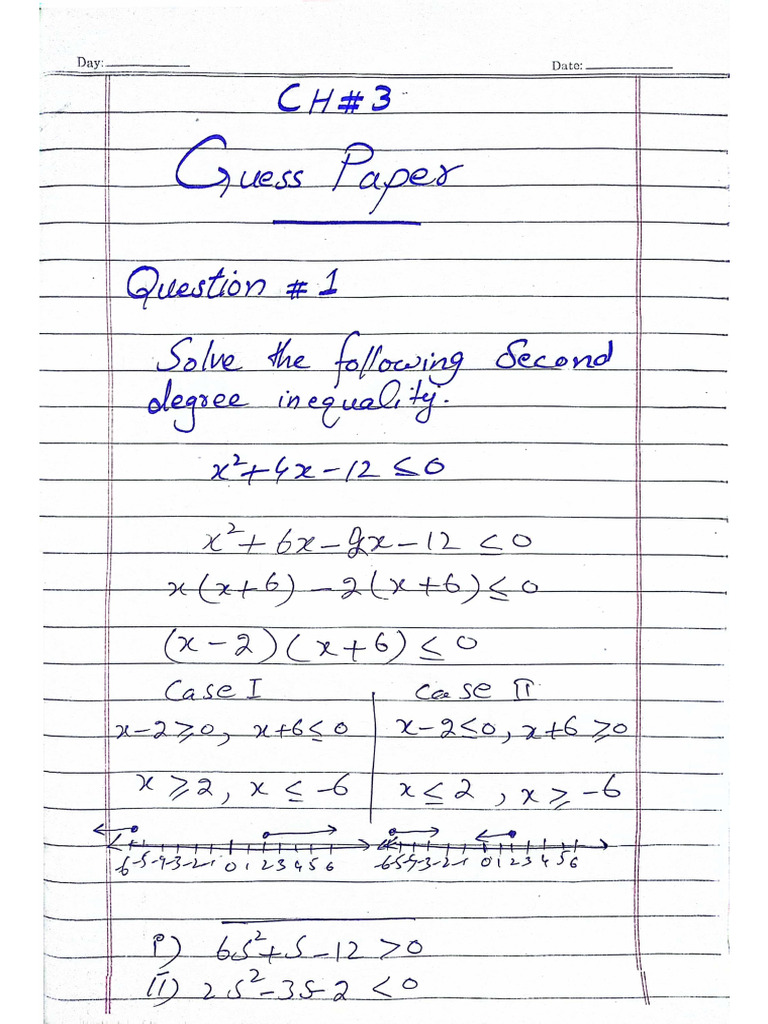 Day: Date:
CH # 3
Guess Paper
Question # 1
Solve the following Second
degree inequality.
x²+4x-12 ≤0
x²+6x-2x-12 ≤0
x(x+6)-2(x+6)≤0
(x-2)(x+6)≤0
Case I Case II
x-2≥0, x+6≤0 x-2≤0, x+6 ≥0
x ≥2, x ≤ -6 x ≤ 2, x ≥ -6
-6-5-4-3-2-1 0 1 2 3 4 5 6 -6-5-4-3-2-1 0 1 2 3 4 5 6
I) 6S²+S-12 >0
II) 2S²-3S-2 <0